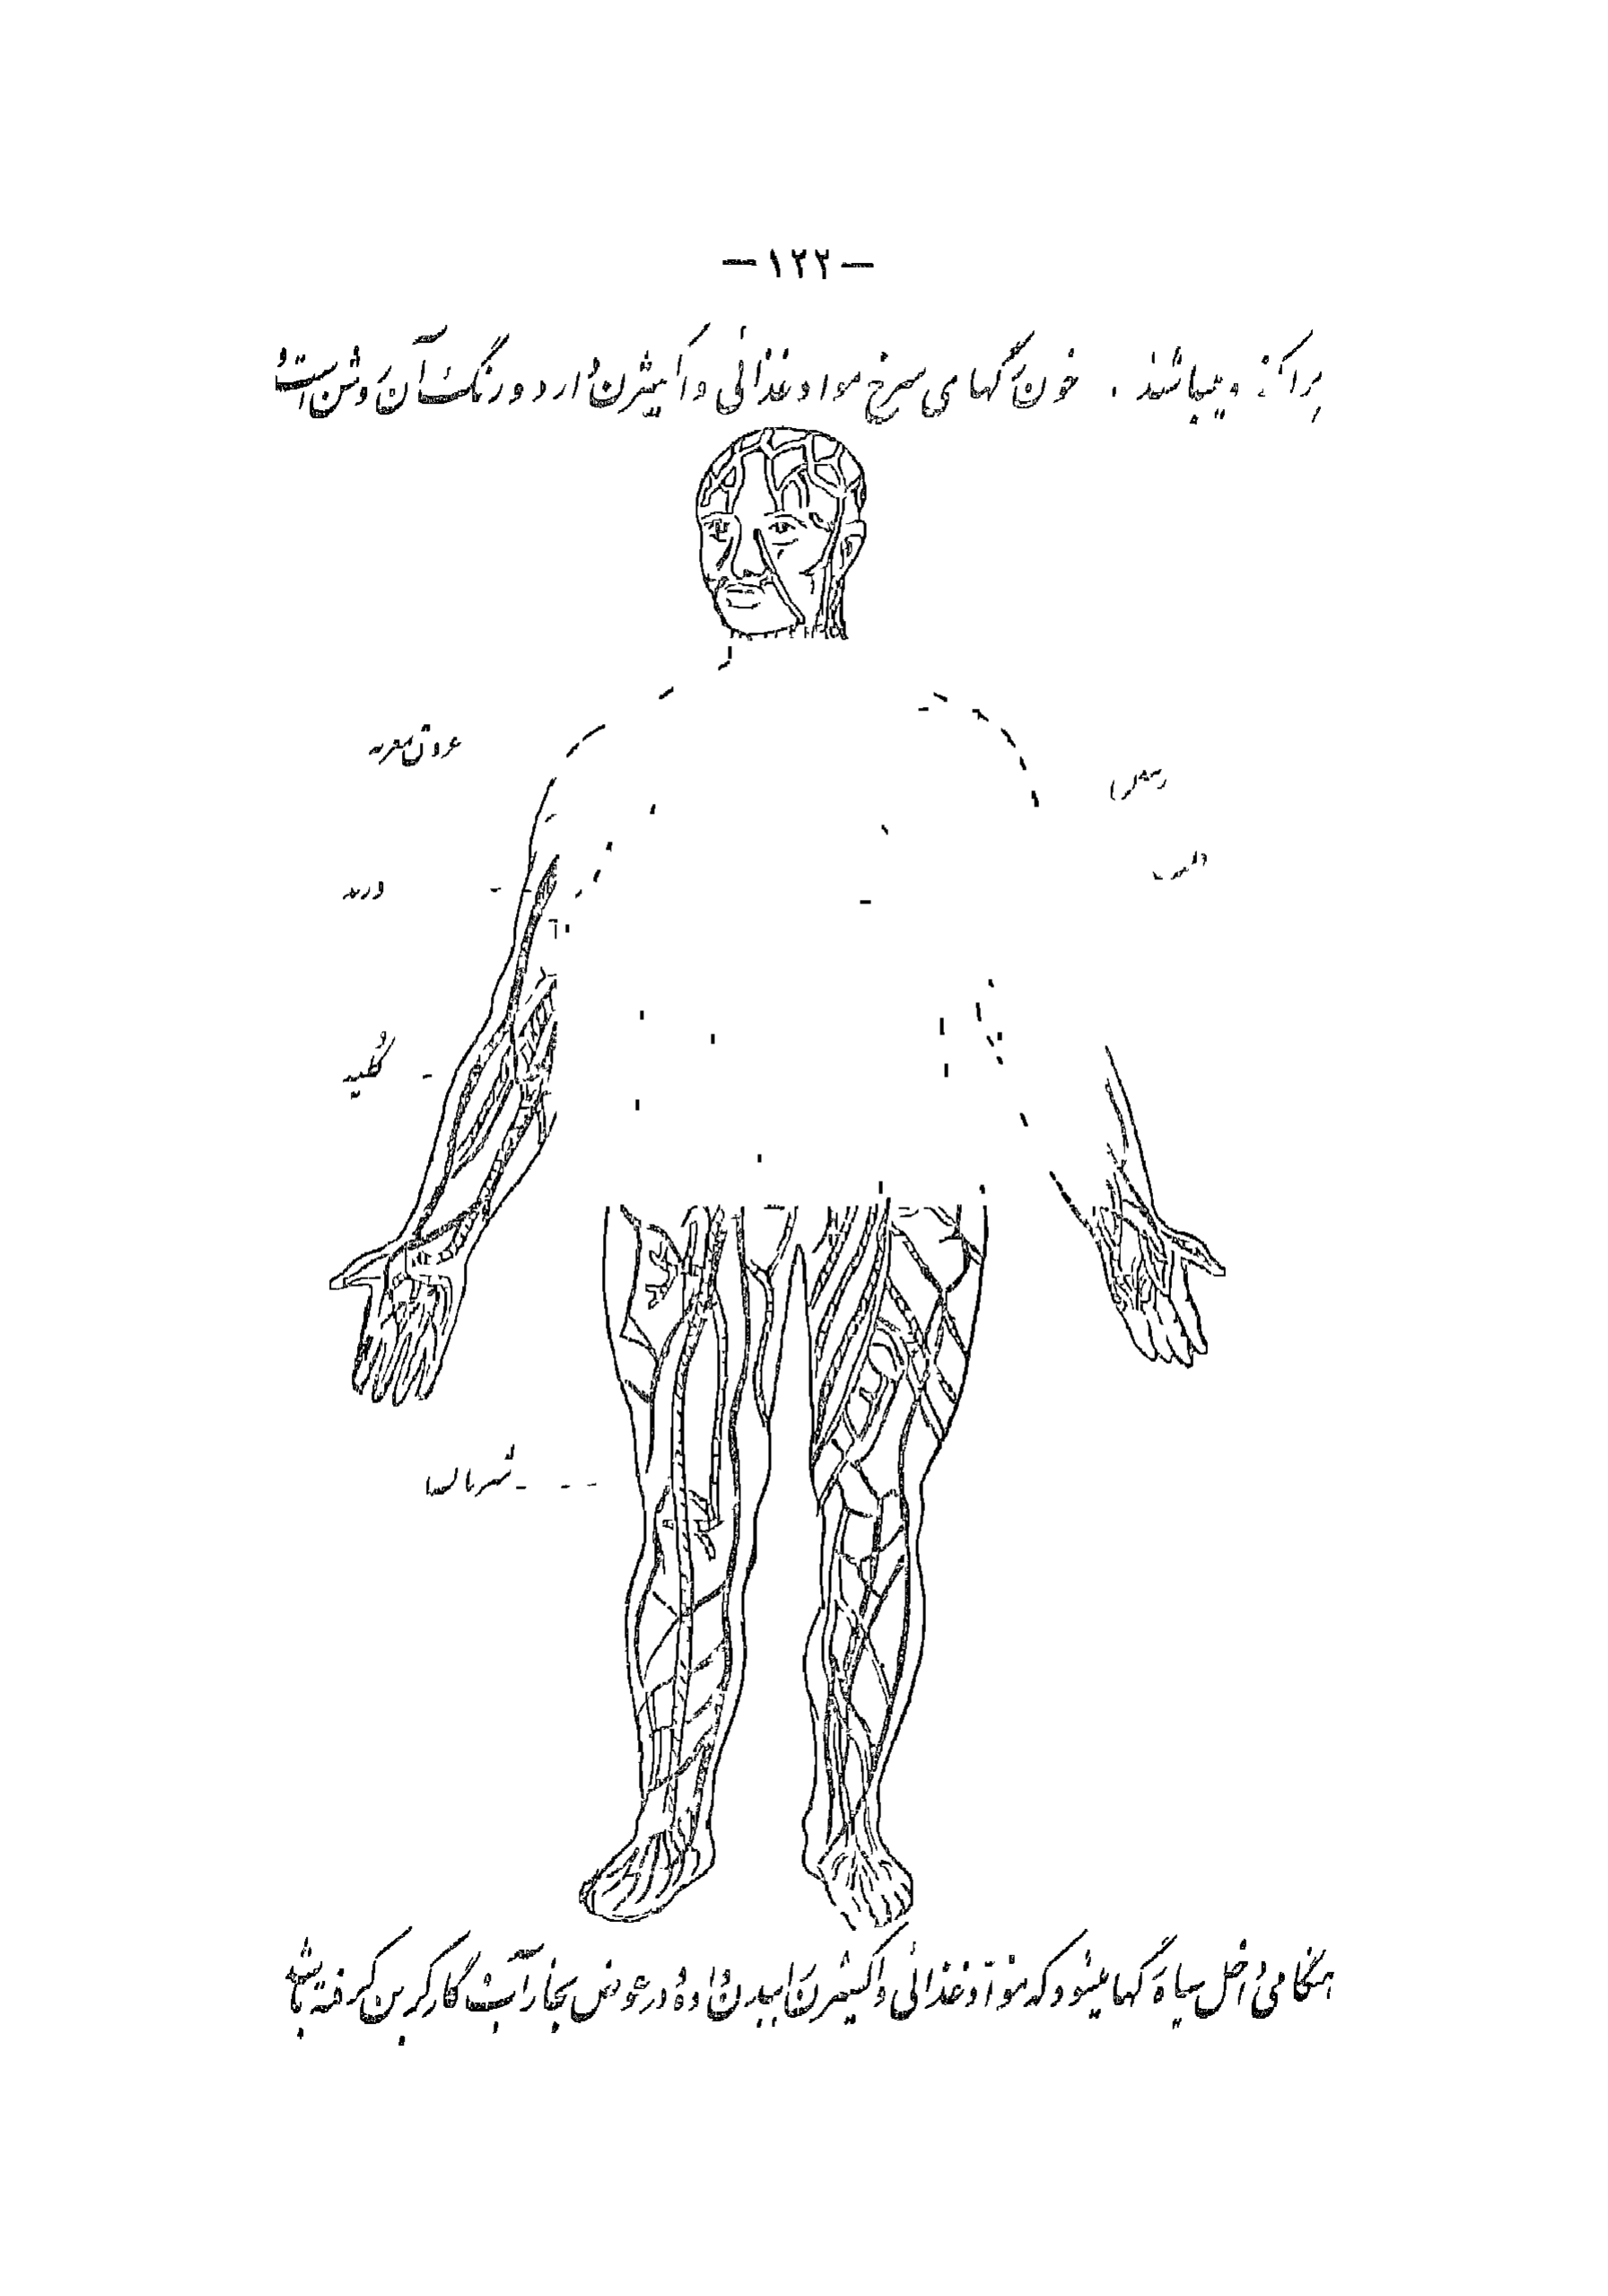 -۱۲۲-
پراکنده میباشند . خون رگهای سرخ مواد غذائی و اکسیژن دارد و رنگ آن روشن است و
ورید
گلیه
شریانها
هنگامی داخل سیاه رگها میشود که مواد غذائی و اکسیژن را ببدن داده و در عوض بخار آب گاز کربن گرفته باشد